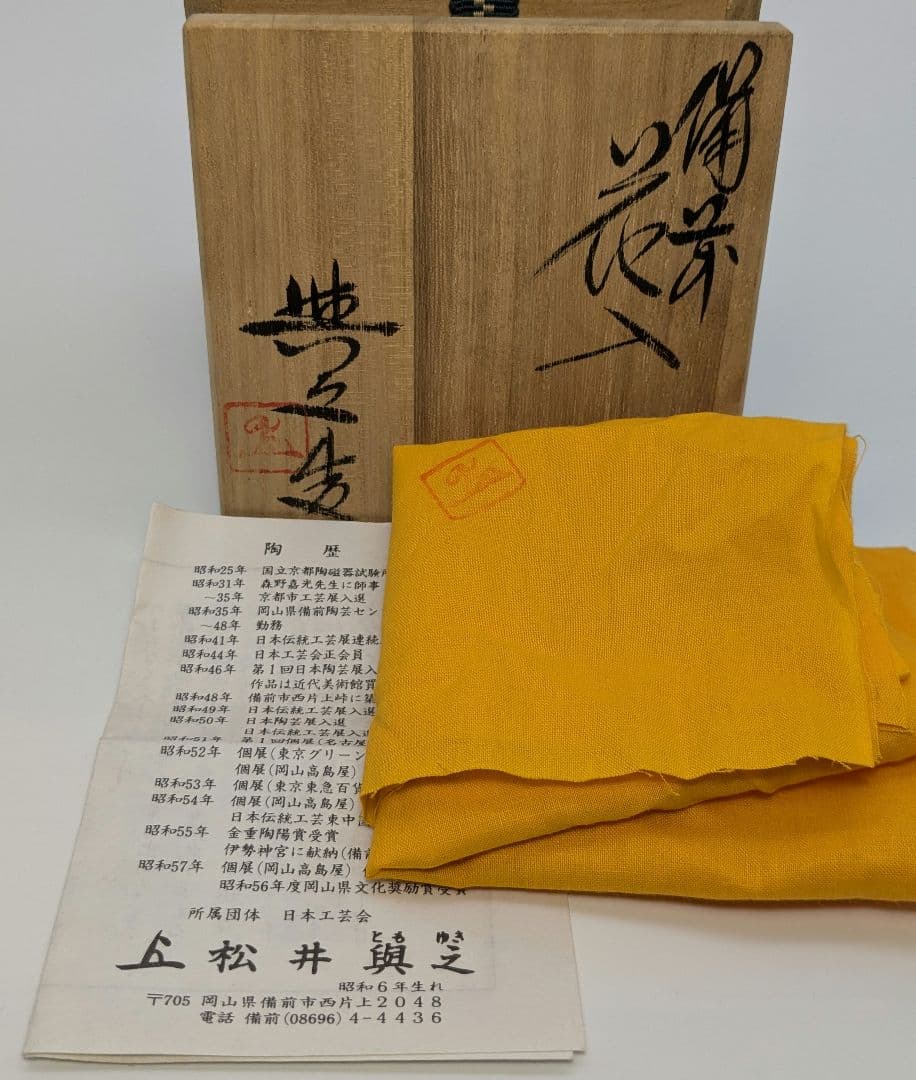 備前
花入
與之造
陶 歴
昭和25年 国立京都陶磁器試験所
昭和31年 森野嘉光先生に師事
～35年 京都市工芸展入選
昭和35年 岡山県備前陶芸セン
～48年 勤務
昭和41年 日本伝統工芸展連続
昭和44年 日本工芸会正会員
昭和46年 第1回日本陶芸展入
作品は近代美術館買
昭和48年 備前市西片上峠に築
昭和49年 日本伝統工芸展入選
昭和50年 日本陶芸展入選
日本伝統工芸展入選
昭和51年 第1回個展(名古屋
昭和52年 個展(東京グリーン
個展(岡山高島屋)
昭和53年 個展(東京東急百貨
昭和54年 個展(岡山高島屋)
日本伝統工芸東中国
昭和55年 金重陶陽賞受賞
伊勢神宮に献納(備前
昭和57年 個展(岡山高島屋)
昭和56年度岡山県文化奨励賞受賞
所属団体 日本工芸会
松井與之
とも ゆき
昭和6年生れ
〒705 岡山県備前市西片上2048
電話 備前(08696)4-4436